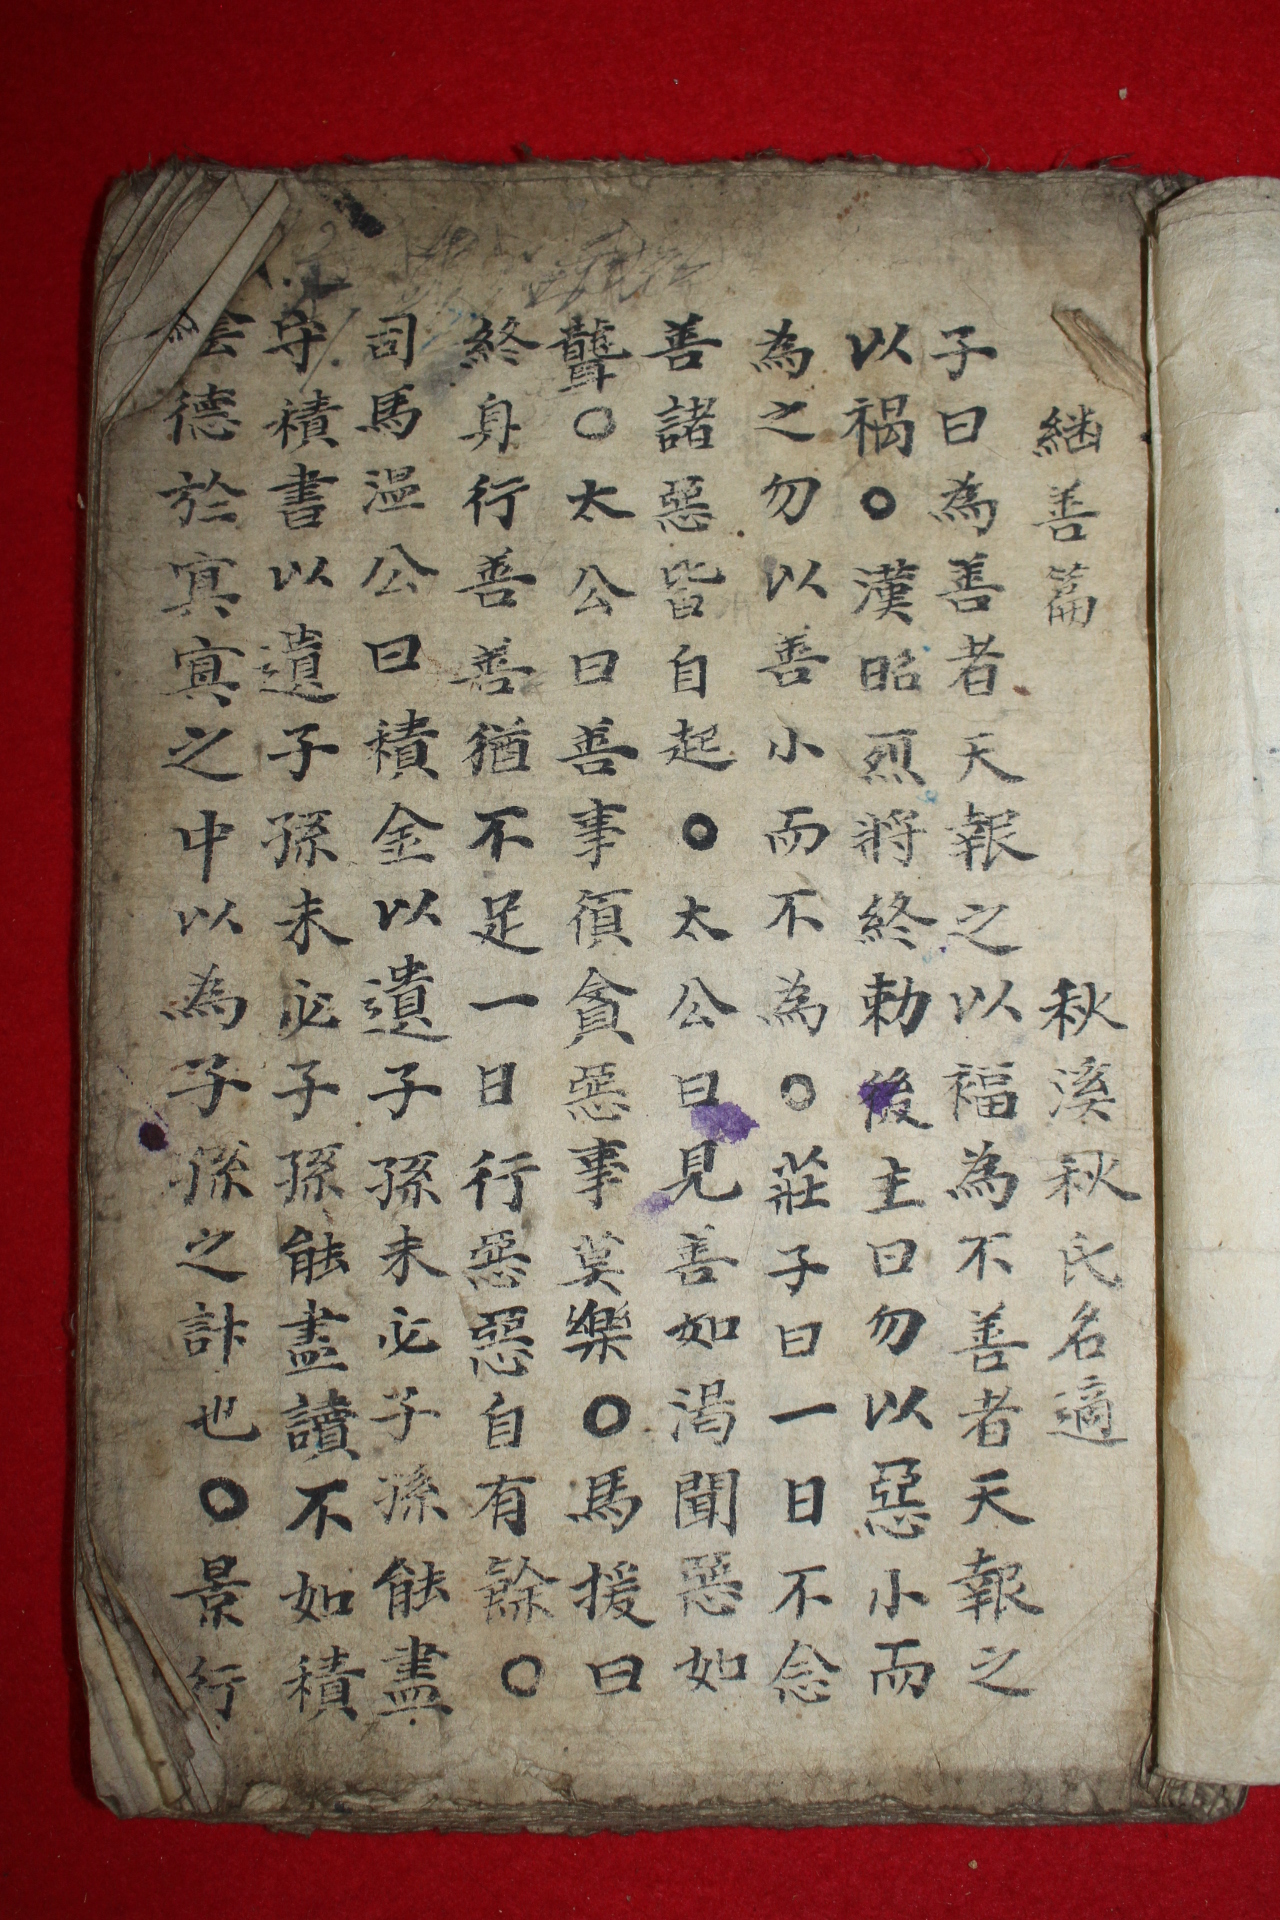 繼善篇 秋溪秋氏名適
子曰為善者天報之以福為不善者天報之
以禍○漢昭烈將終勅後主曰勿以惡小而
為之勿以善小而不為○莊子曰一日不念
善諸惡皆自起○太公曰見善如渴聞惡如
聾○太公曰善事須貪惡事莫樂○馬援曰
終身行善善猶不足一日行惡惡自有餘○
司馬温公曰積金以遺子孫未必子孫能盡
守積書以遺子孫未必子孫能盡讀不如積
陰德於冥冥之中以為子孫之計也○景行